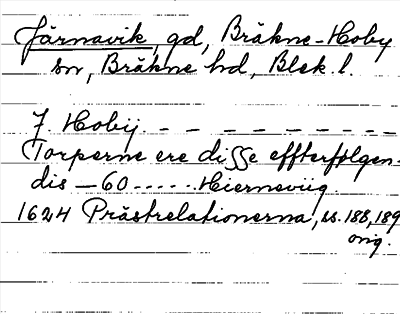 Järnavik, gd, Bräkne-Hoby
sn, Bräkne hd, Blek. l.
J Hobij - - - - - - - - -
Torperne ere disse effterfølgen-
dis - 60 - - - - - - Hierneviig.
1624 Prästrelationerna, ss. 188, 189
orig.